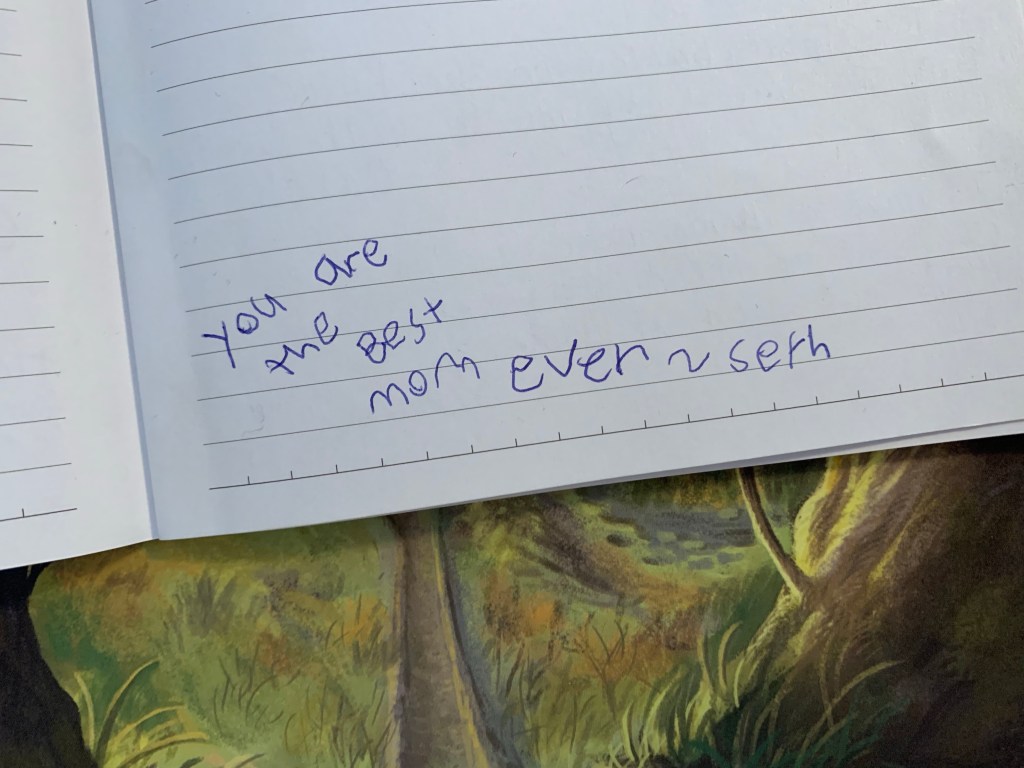 you are
the Best
mom ever ~ seth